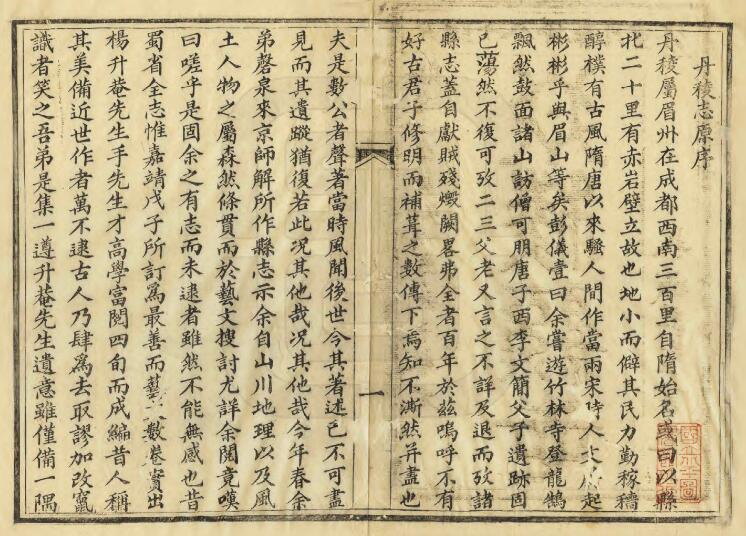 丹稜志原序
丹稜屬眉州在成都西南三百里自隋始名或曰以縣
北二十里有赤岩壁立故也地小而僻其民力勤稼穡
醇樸有古風隋唐以來騷人間作當兩宋時人文蔚起
彬彬乎與眉山等矣彭儀壹曰余嘗遊竹林寺登龍鵠
飄然鼓面諸山訪僧可朋唐子西李文簡父子遺跡固
已蕩然不復可攷二三父老又言之不詳及退而攷諸
縣志蓋自獻賊殘燬闕畧弗全者百年於茲嗚呼不有
好古君子修明而補葺之數傳下焉知不澌然并盡也
夫是數公者聲著當時風聞後世今其著述已不可盡
見而其遺蹤猶復若此况其他哉况其他哉今年春余
弟磬泉來京師解所作縣志示余自山川地理以及風
土人物之屬森然條貫而於藝文搜討尤詳余閱竟嘆
曰嗟乎是固余之有志而未逮者雖然不能無感也昔
蜀省全志惟嘉靖戊子所訂爲最善而藝文數卷實出
楊升菴先生手先生才高學富閱四旬而成編昔人稱
其美備近世作者萬不逮古人乃肆爲去取謬加改竄
識者笑之吾弟是集一遵升菴先生遺意雖僅備一隅
一